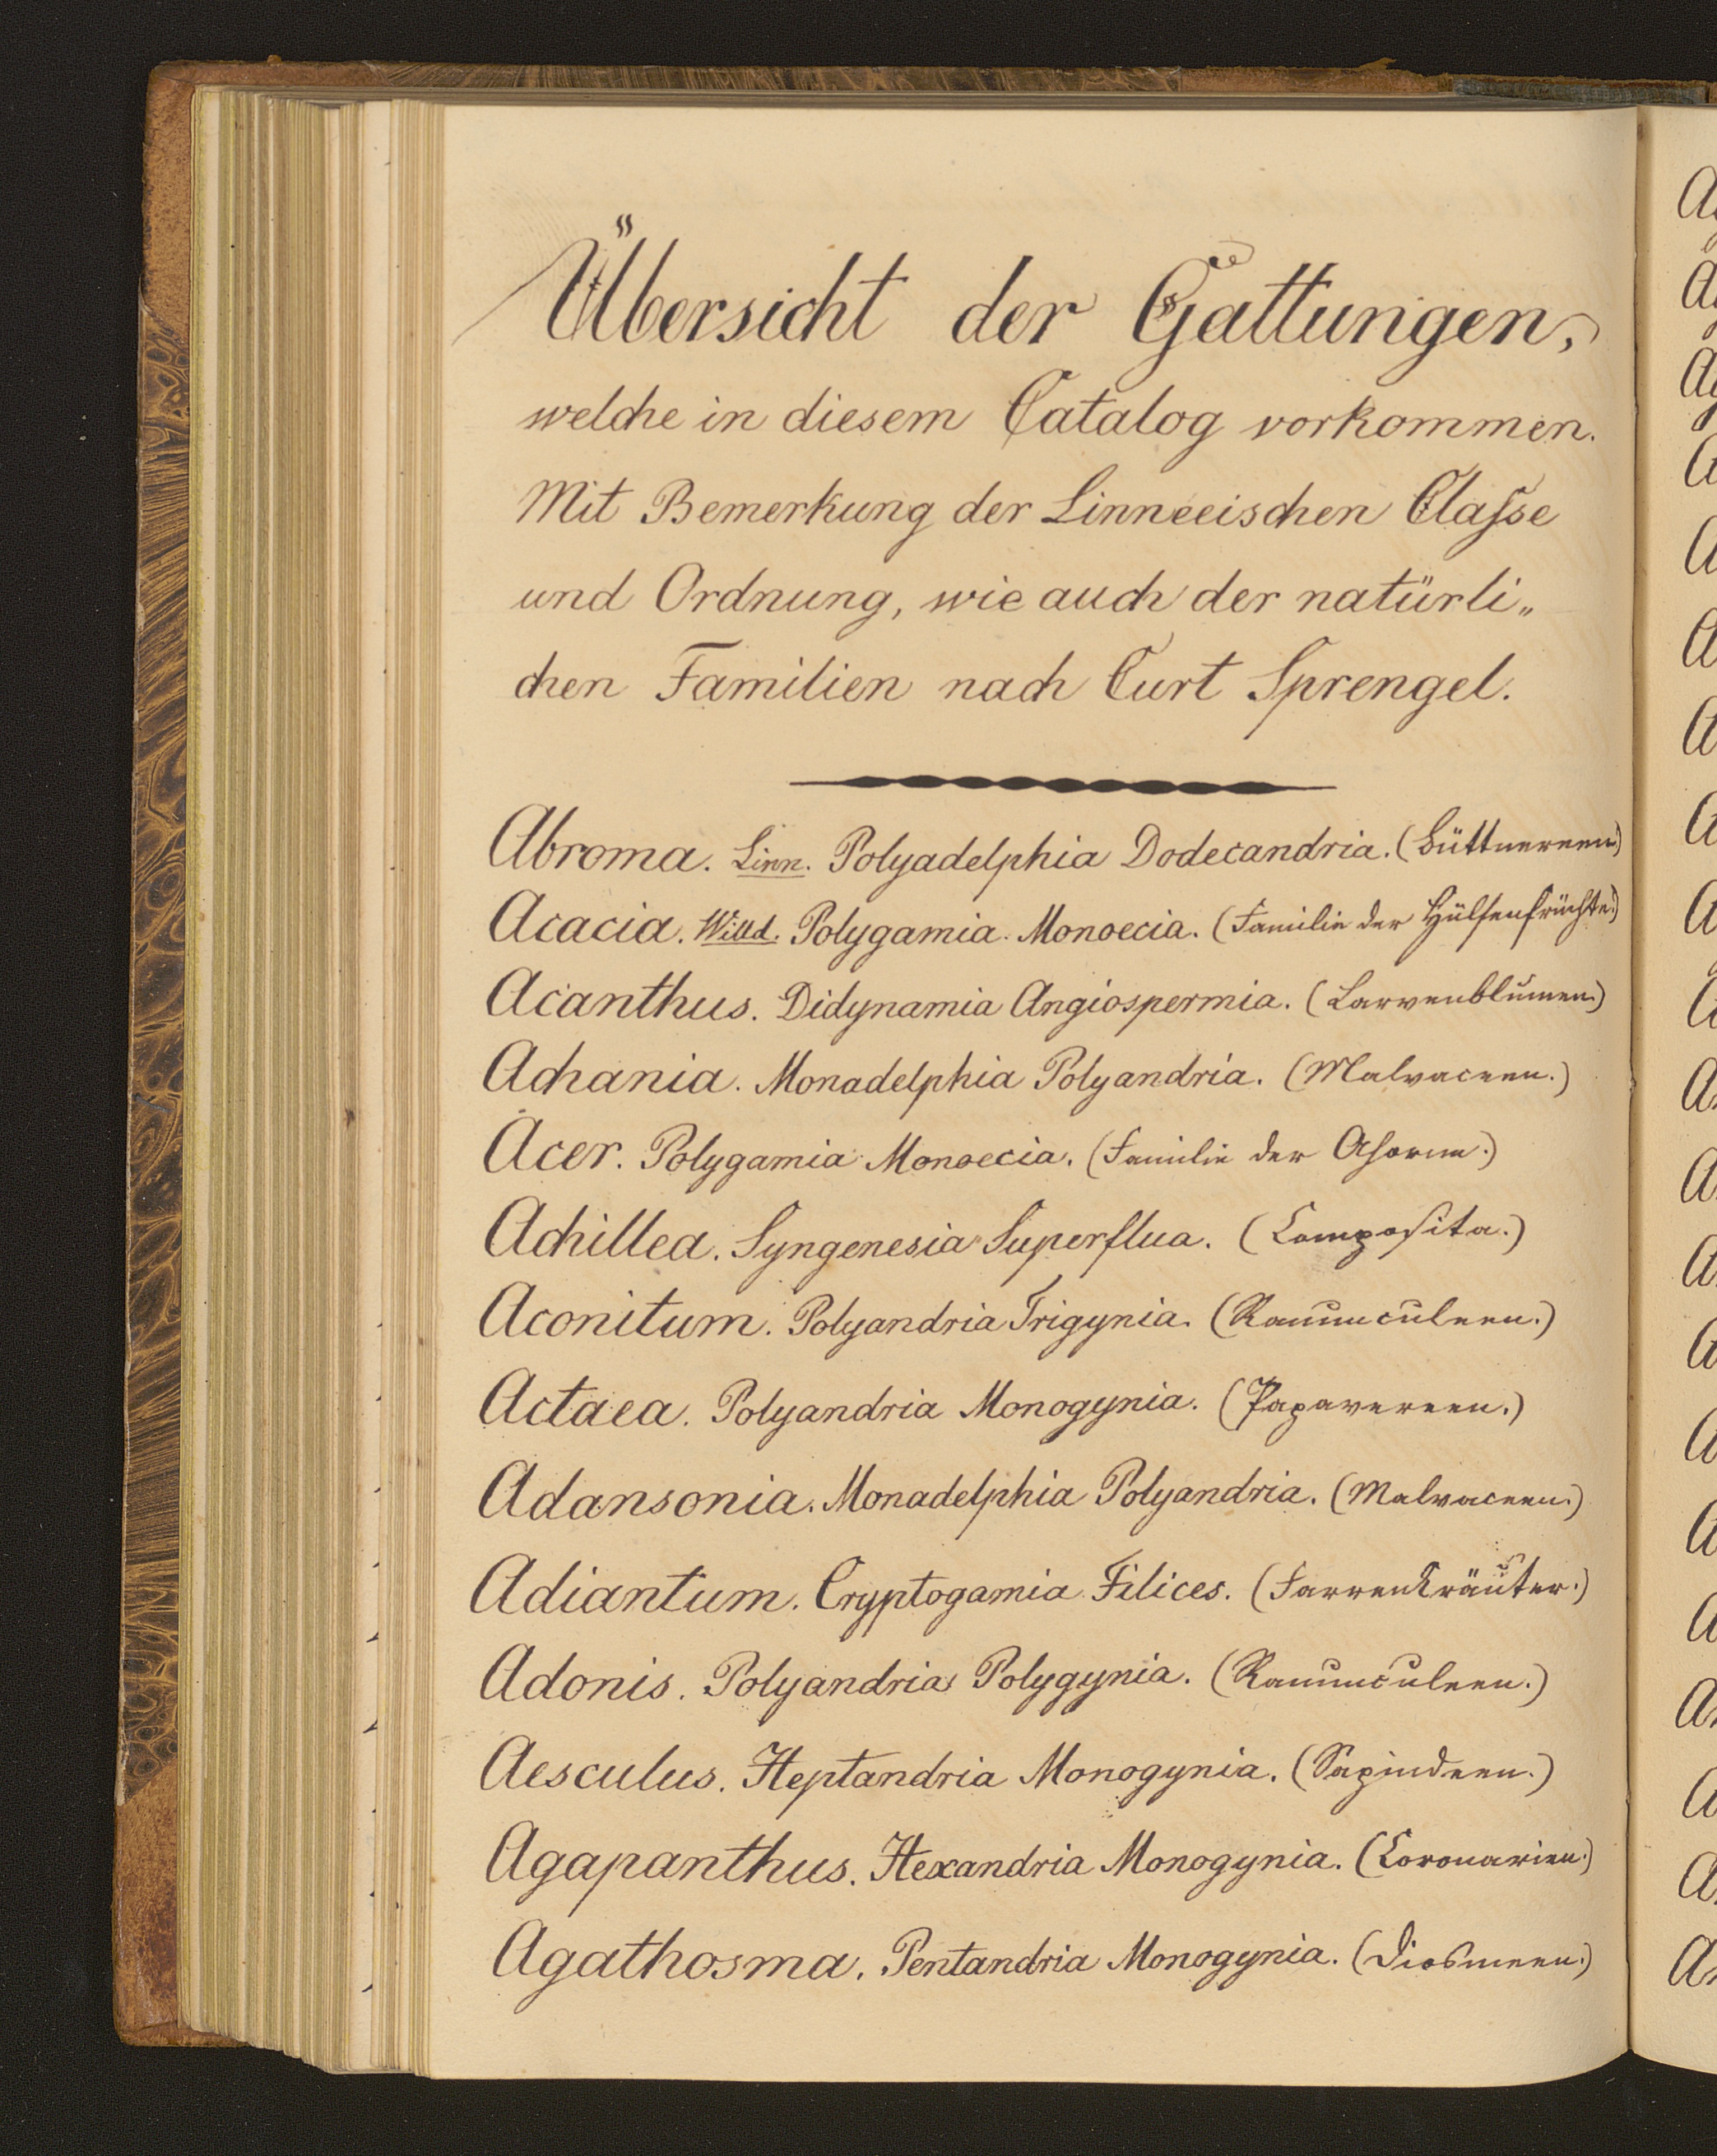 Übersicht der Gattungen,
welche in diesem Catalog vorkommen.
Mit Bemerkung der Linneeischen Classe
und Ordnung, wie auch der natürli„
chen Familien nach Curt Sprengel.
Abroma. Linn. Polyadelphia Dodecandria. (Büttnereen)
Acacia. Willd. Polygamia. Monoecia. (Familie der Hülsenfrüchte.)
Acanthus. Didynamia Angiospermia. (Larvenblumen.)
Achania. Monadelphia Polyandria. (Malvaceen.)
Acer. Polygamia Monoecia. (Familie der Ahorne.)
Achillea. Syngenesia Superflua. (Composita.)
Aconitum. Polyandria Trigynia. (Ranunculeen.)
Actaea. Polyandria Monogynia. (Papavereen.)
Adansonia. Monadelphia Polyandria. (Malvaceen.)
Adiantum. Cryptogamia Filices. (Farrenkräuter.)
Adonis. Polyandria Polygynia. (Ranunculeen.)
Aesculus. Heptandria Monogynia. (Sapindeen.)
Agapanthus. Hexandria Monogynia. (Coronarien.)
Agathosma. Pentandria Monogynia. (Diosmeen.)